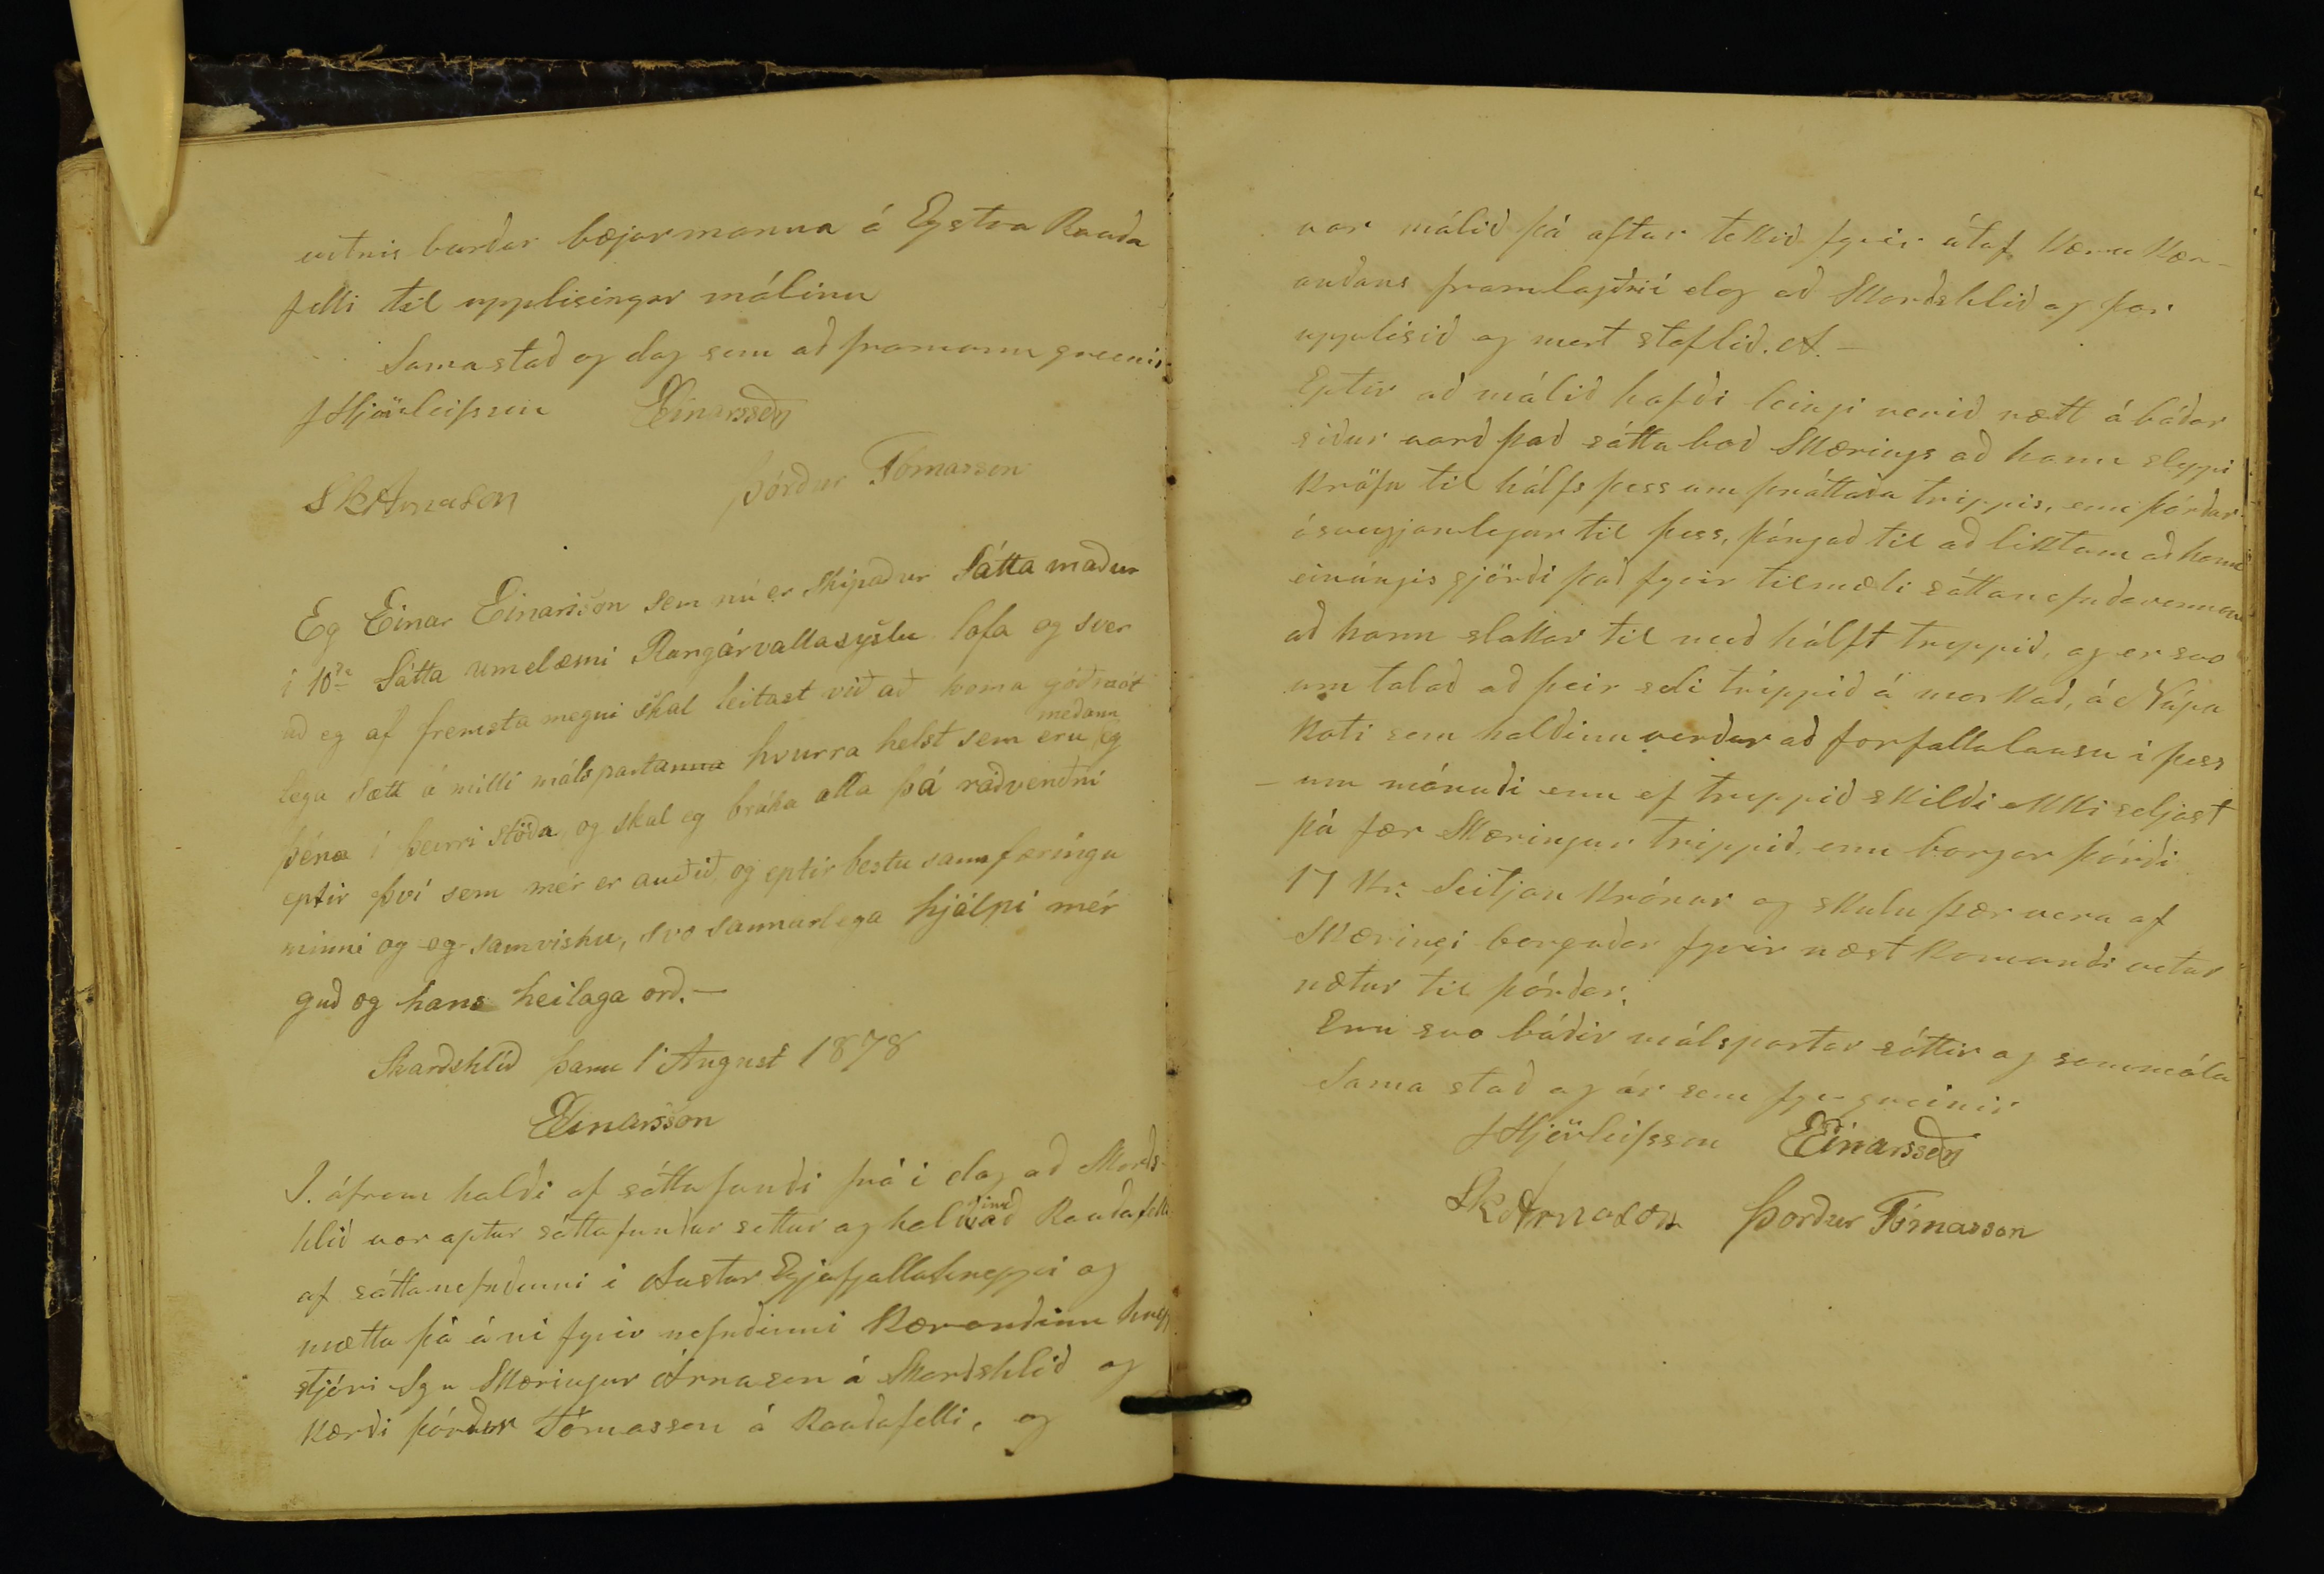 vitnis burdar bæjarmanna á Eystra Rauda
felli til upplisingar málinu
Sama stað og dag sem að framann greinir
J Hjörleifsson EEinarsson
Sk Arnason Þórður Tómasson
Eg Einar Einarsson sem nú er skipaður Sátta maður
í 10da Sátta umdæmi Rangárvallasyslu lofa og sver
að eg af fremsta megni skal leitast við að koma góðmót
lega Sætt á milli málspartanna hvurra helst sem eru meðann eg
þéna í þeirri stöða, og skal eg brúka alla þá ráðvendni
eptir því sem mér er auðið, og eptir bestu sannfæringu
minni og og samvisku, svo sannarlega hjálpi mér
guð og hans heilaga orð.—
Skarðshlíð þann 1 August 1878
EEinarsson
I. áfram haldi af sáttafundi frá i dag að Skarðs-
hlið var aptur sáttafundur settur og haldinn að Raudafelli
af sáttanefndinni i Austur Eyjafjallahreppi og
mættu þá á ní fyrir nefndinni Kærandinn hrepp
stjóri Sgr Skæringur Árnason á Skarðshlið og
Kærði þórdur Tómasson á Raudafelli, og
var málið þá aftur tekið fyrir útaf Kæru Kær-
andans framlagðri i dag að Skarðshlið og þar
upplisið og mert staflið. A.—
Eptir að málið hafði leingi verið rætt á báðar
siður varð það sátta boð Skærings að hann slyppi
Kröfu til hálfs þess um þráttaða trippis, enn þórdur
ósveigjanlegur til þess, þángað til að liktum að hann
einúngis gjörði það fyrir tilmæli sáttanefndarennar
að hann slakar til með hálft trippið, og er svo
um talað að þeir seli trippið á markað, á Núpa
Koti sem haldinn verður að forfallalausu i þess
-um mánuði enn ef trippið skildi ekki seljast
þá fær Skæringur trippið, enn borgar þórði
17 Kr. Seitjan Krónur og skulu þær vera af
Skæringi borgaðar fyrir næst Komandi vetur
nætur til þórðar.
Eru svo báðir málspartar sáttir og sammála
Sama stað og ár sem fyr greinir
J Hjörleifsson EEinarsson
Sk Arnason Þorður Tómasson